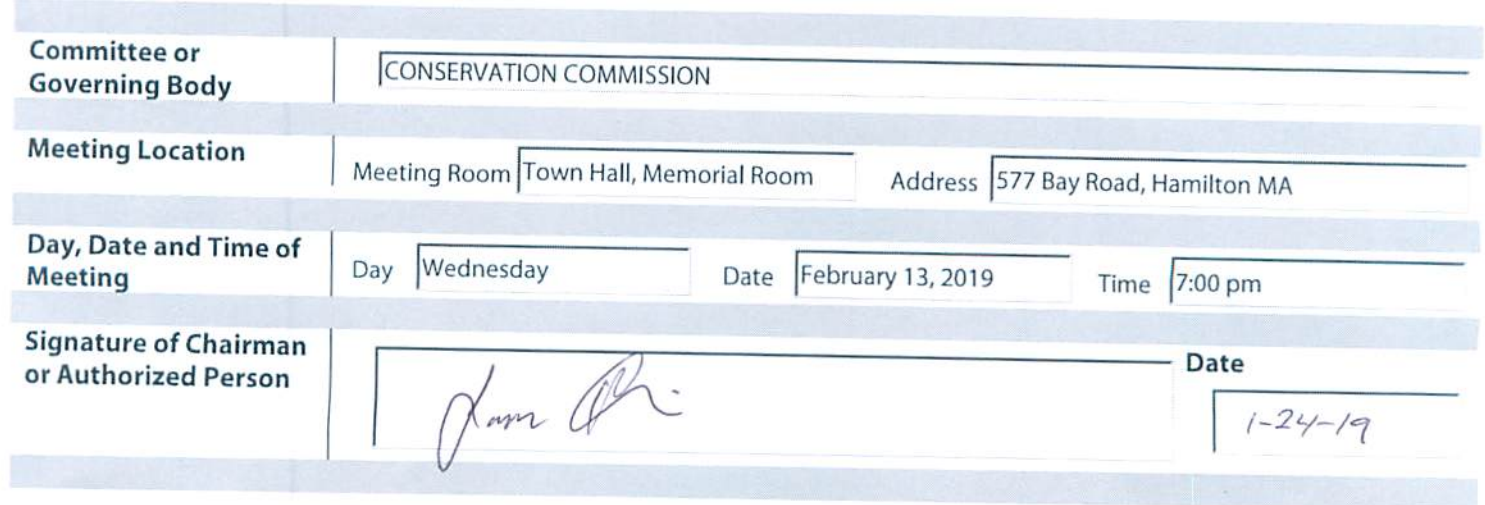 Committee or
Governing Body
CONSERVATION COMMISSION
Meeting Location
Meeting Room Town Hall, Memorial Room Address 577 Bay Road, Hamilton MA
Day, Date and Time of
Meeting
Day Wednesday Date February 13, 2019 Time 7:00 pm
Signature of Chairman
or Authorized Person
Date
1-24-19